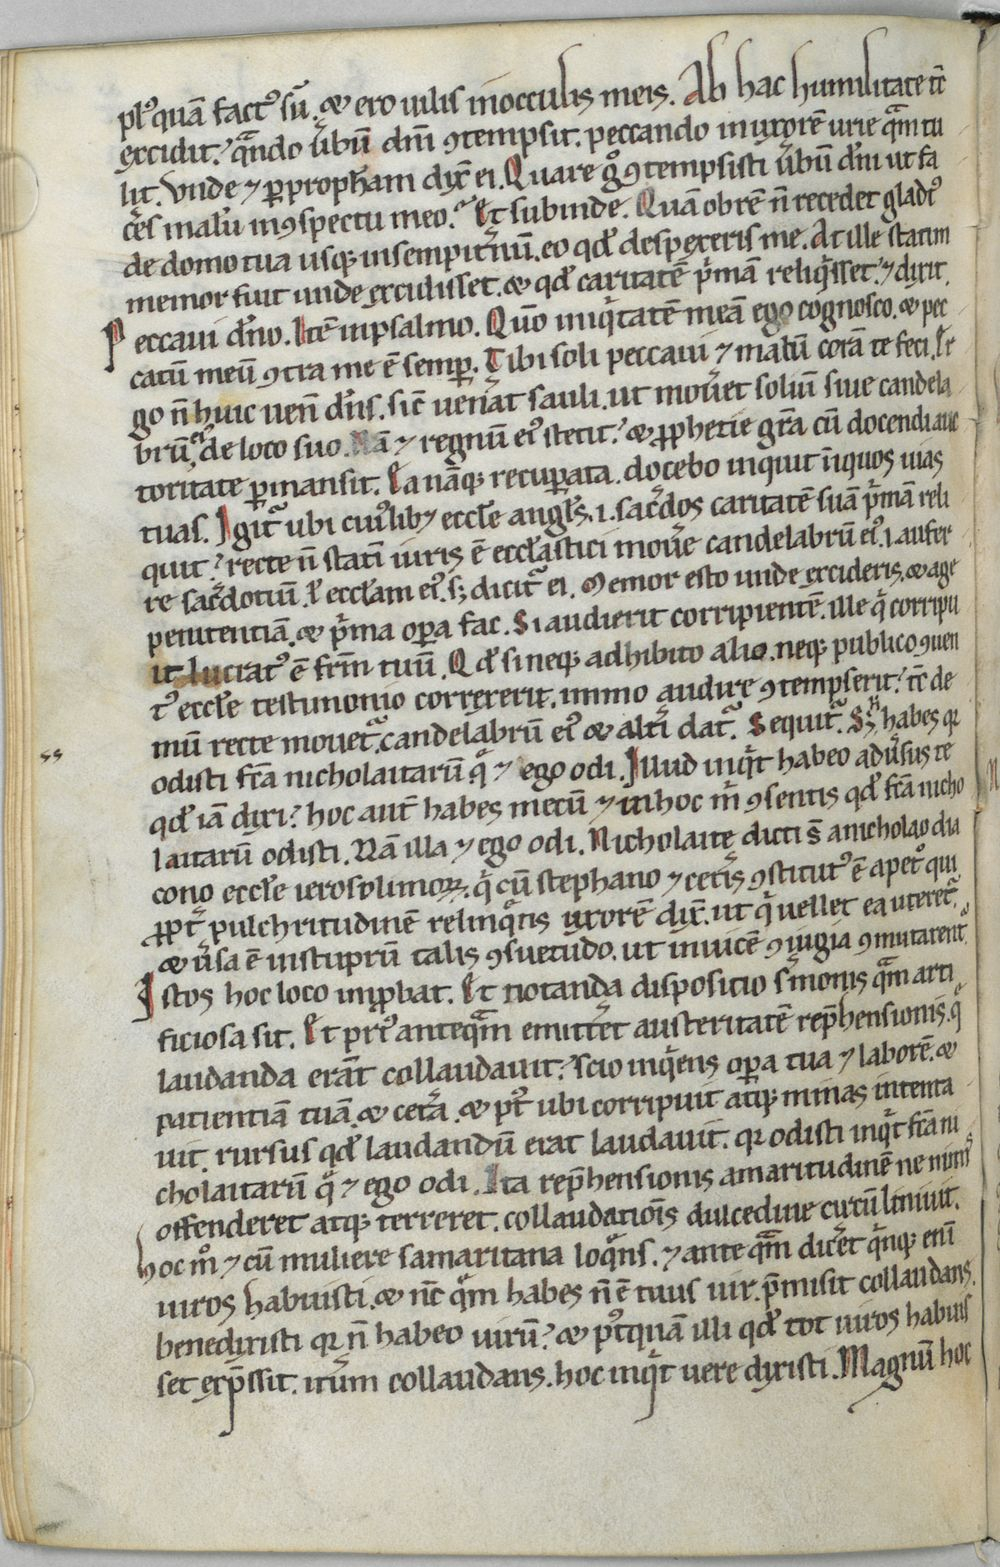 pl᷒quā fact᷒ sū. & ero uilis inocculis meis. Ab hac humilitate tc̄
excidit. qͣndo ūbū dnī ꝯtempsit. peccando inuxorē urie qͣm tu
lit. Vnde ⁊ ꝑ propham dix̄ ei. Quare gͦ ꝯtempsisti ūbū dn̄i ut fa
ceˀs malū inꝯspectu meo. Et subinde. Quā obrē n̄ recedet gladi᷒
de domo tua usqꝫ insempitˀnū. eo qd̄ despexeris me. At ille statim
memor fuit unde excidisset. & qd̄ caritatē pˀmā reliqˀsset. ⁊ dixit.
Peccaui dn̄o. Itē inpsalmo. Qm̄o iniqˀtatē meā ego cognosco. & pec
catū meū ꝯtra me ē semꝑ. Tibi soli peccaui ⁊ malū corā te feci. Er
go n̄ huic ueīt dn̄s. sic̄ ueneˀat sauli. ut moueˀet soliū siue candela
brū de loco suo. Nā ⁊ regnū ei᷒ stetit. & ꝓphetie grā cū docendi auc
toritate ꝑmansit. Ea nāqꝫ recuꝑata. docebo inquit iniquos uias
tuas. Igitˀ ubi cui᷒libꝫ eccl̄e angl̄s .i. sacˀdos caritatē suā pˀmā reli
quit. recte n̄ statī iuris ē eccl̄astici mouˀe candelabrū ei᷒ .i. aufer
re sacˀdotiū. l̄ eccl̄am ei᷒. sꝫ dicitˀ ei. Memor esto unde excideris. & age
penitentiā. & pˀma oꝑa fac. Si audierit corripientē. ille qˀ corripu
it lucrat᷒ ē frm̄ tuū. Qd̄ si neqꝫ adhibito alio. neqꝫ publico ꝯuen
t᷒ eccl̄e testimonio correxerit. immo audire ꝯtempserit. tc̄ de
mū recte mouetˀ candelabrū ei᷒ & altˀi datˀ. Sequitˀ. Sꝫ h̄ habes qꝛ
odisti fc̄a nicholaitarū qˀ ⁊ ego odi. Illud inqˀt habeo adūsus te
qd̄ iā dixi. hoc aut̄ habes mecū ⁊ inhoc mˀ ꝯsentis qd̄ fc̄a nicho
laitarū odisti. Nā illa ⁊ ego odi. Nicholaite dicti s̄ anicholao dia
cono eccl̄e ierosolimoꝝ. qˀ cū stephano ⁊ cetˀis ꝯstitut᷒ ē apetͦ qui
ꝓpt̄ pulchritudinē relinqˀtis uxorē dix̄. ut qˀ uellet ea uteretˀ
& ūsa ē instuprū talis ꝯsuetudo. ut inuicē ꝯiugia ꝯmutarentˀ
Istos hoc loco imꝓbat. Et notanda dispositio sˀmonis qͣm arti
ficiosa sit. Et pri᷒ anteqͣm emittˀet austeritatē rep̄hensionis. qˀ
laudanda erāt collaudauit. scio inqˀens oꝑa tua ⁊ laborē. &
patientiā tuā. & cetˀa. & pt᷒ ubi corripuit atqꝫ minas intenta
uit. rursus qd̄ laudandū erat laudauit. qꝛ odisti inqˀt fc̄a ni
cholaitarū qˀ ⁊ ego odi. Ita rep̄hensionis amaritudinē ne nimis
offenderet atqꝫ terreret. collaudatiōis dulcedine circūliniuit.
hoc m᷒ ⁊ cū muliere samaritana loqͣns. ⁊ ante qͣm dicˀet qˀnqꝫ enī
uiros habuisti. & nc̄ qˀm habes n̄ ē tuus uir. p̄misit collaudans.
benedixisti qꝛ n̄ habeo uirū. & pt᷒quā illi qd̄ tot uiros habuis
set exp̄ssit. itˀum collaudans. hoc inqˀt uere dixisti. Magnū hoc